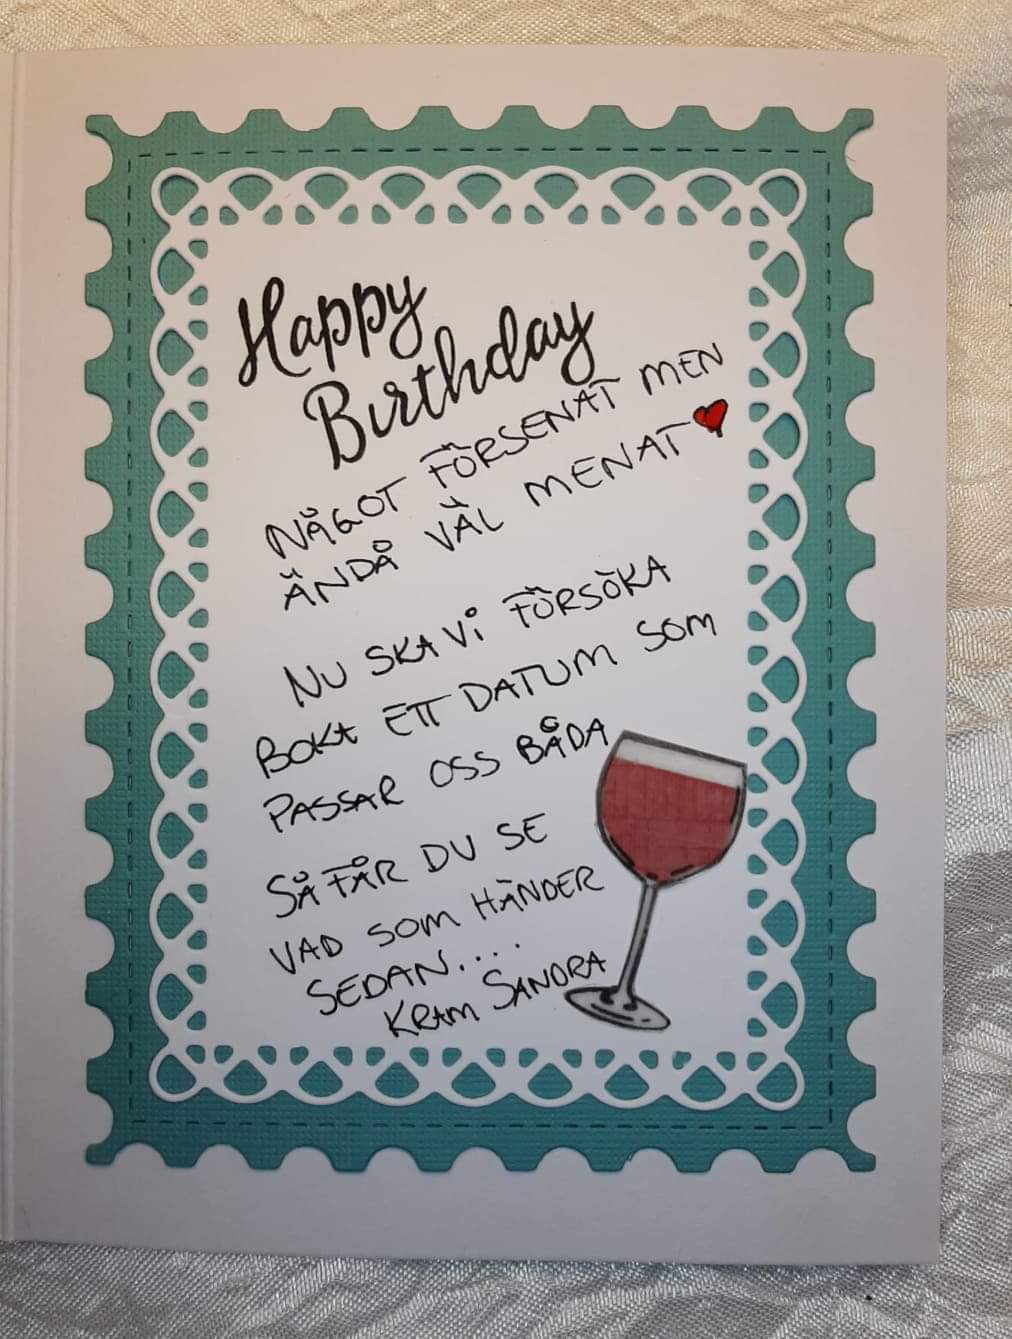 Happy
Birthday
NÅGOT FÖRSENAT MEN
ÄNDÅ VÄL MENAT
NU SKA VI FÖRSÖKA
BOKA ETT DATUM SOM
PASSAR OSS BÅDA
SÅ FÅR DU SE
VAD SOM HÄNDER
SEDAN...
KRAM SANDRA